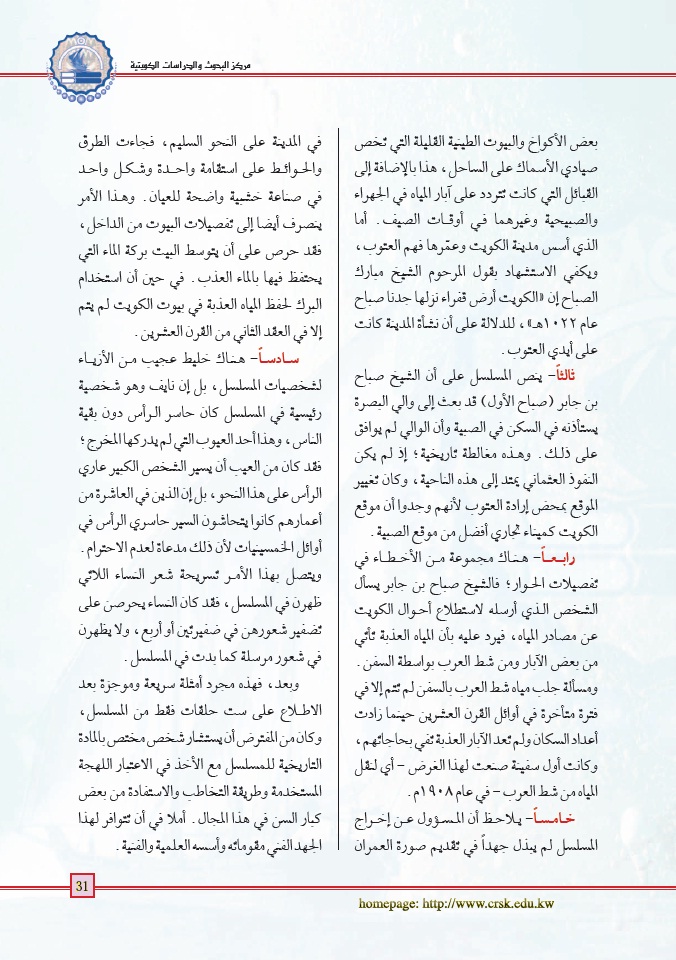 مركز البحوث والدراسات الكويتية
بعض الأكواخ والبيوت الطينية القليلة التي تخص
صيادي الأسماك على الساحل، هذا بالإضافة إلى
القبائل التي كانت تتردد على آبار المياه في الجهراء
والصبيحية وغيرهما في أوقات الصيف. أما
الذي أسس مدينة الكويت وعمّرها فهم العتوب،
ويكفي الاستشهاد بقول المرحوم الشيخ مبارك
الصباح إن «الكويت أرض قفراء نزلها جدنا صباح
عام ١٠٢٢هـ»، للدلالة على أن نشأة المدينة كانت
على أيدي العتوب.
ثالثاً- ينص المسلسل على أن الشيخ صباح
بن جابر (صباح الأول) قد بعث إلى والي البصرة
يستأذنه في السكن في الصبية وأن الوالي لم يوافق
على ذلك. وهذه مغالطة تاريخية؛ إذ لم يكن
النفوذ العثماني يمتد إلى هذه الناحية، وكان تغيير
الموقع بمحض إرادة العتوب لأنهم وجدوا أن موقع
الكويت كميناء تجاري أفضل من موقع الصبية.
رابعاً- هناك مجموعة من الأخطاء في
تفصيلات الحوار؛ فالشيخ صباح بن جابر يسأل
الشخص الذي أرسله لاستطلاع أحوال الكويت
عن مصادر المياه، فيرد عليه بأن المياه العذبة تأتي
من بعض الآبار ومن شط العرب بواسطة السفن.
ومسألة جلب مياه شط العرب بالسفن لم تتم إلا في
فترة متأخرة في أوائل القرن العشرين حينما زادت
أعداد السكان ولم تعد الآبار العذبة تفي بحاجاتهم،
وكانت أول سفينة صنعت لهذا الغرض - أي لنقل
المياه من شط العرب - في عام ١٩٠٨م.
خامساً- يلاحظ أن المسؤول عن إخراج
المسلسل لم يبذل جهداً في تقديم صورة العمران
في المدينة على النحو السليم، فجاءت الطرق
والحوائط على استقامة واحدة وشكل واحد
في صناعة خشبية واضحة للعيان. وهذا الأمر
ينصرف أيضا إلى تفصيلات البيوت من الداخل،
فقد حرص على أن يتوسط البيت بركة الماء التي
يحتفظ فيها بالماء العذب. في حين أن استخدام
البرك لحفظ المياه العذبة في بيوت الكويت لم يتم
إلا في العقد الثاني من القرن العشرين.
سادساً- هناك خليط عجيب من الأزياء
لشخصيات المسلسل، بل إن نايف وهو شخصية
رئيسية في المسلسل كان حاسر الرأس دون بقية
الناس، وهذا أحد العيوب التي لم يدركها المخرج؛
فقد كان من العيب أن يسير الشخص الكبير عاري
الرأس على هذا النحو، بل إن الذين في العاشرة من
أعمارهم كانوا يتحاشون السير حاسري الرأس في
أوائل الخمسينيات لأن ذلك مدعاة لعدم الاحترام.
ويتصل بهذا الأمر تسريحة شعر النساء اللائي
ظهرن في المسلسل، فقد كان النساء يحرصن على
تضفير شعورهن في ضفيرتين أو أربع، ولا يظهرن
في شعور مرسلة كما بدت في المسلسل.
وبعد، فهذه مجرد أمثلة سريعة وموجزة بعد
الاطلاع على ست حلقات فقط من المسلسل،
وكان من المفترض أن يستشار شخص مختص بالمادة
التاريخية للمسلسل مع الأخذ في الاعتبار اللهجة
المستخدمة وطريقة التخاطب والاستفادة من بعض
كبار السن في هذا المجال. أملا في أن تتوافر لهذا
الجهد الفني مقوماته وأسسه العلمية والفنية.
31
homepage: http://www.crsk.edu.kw